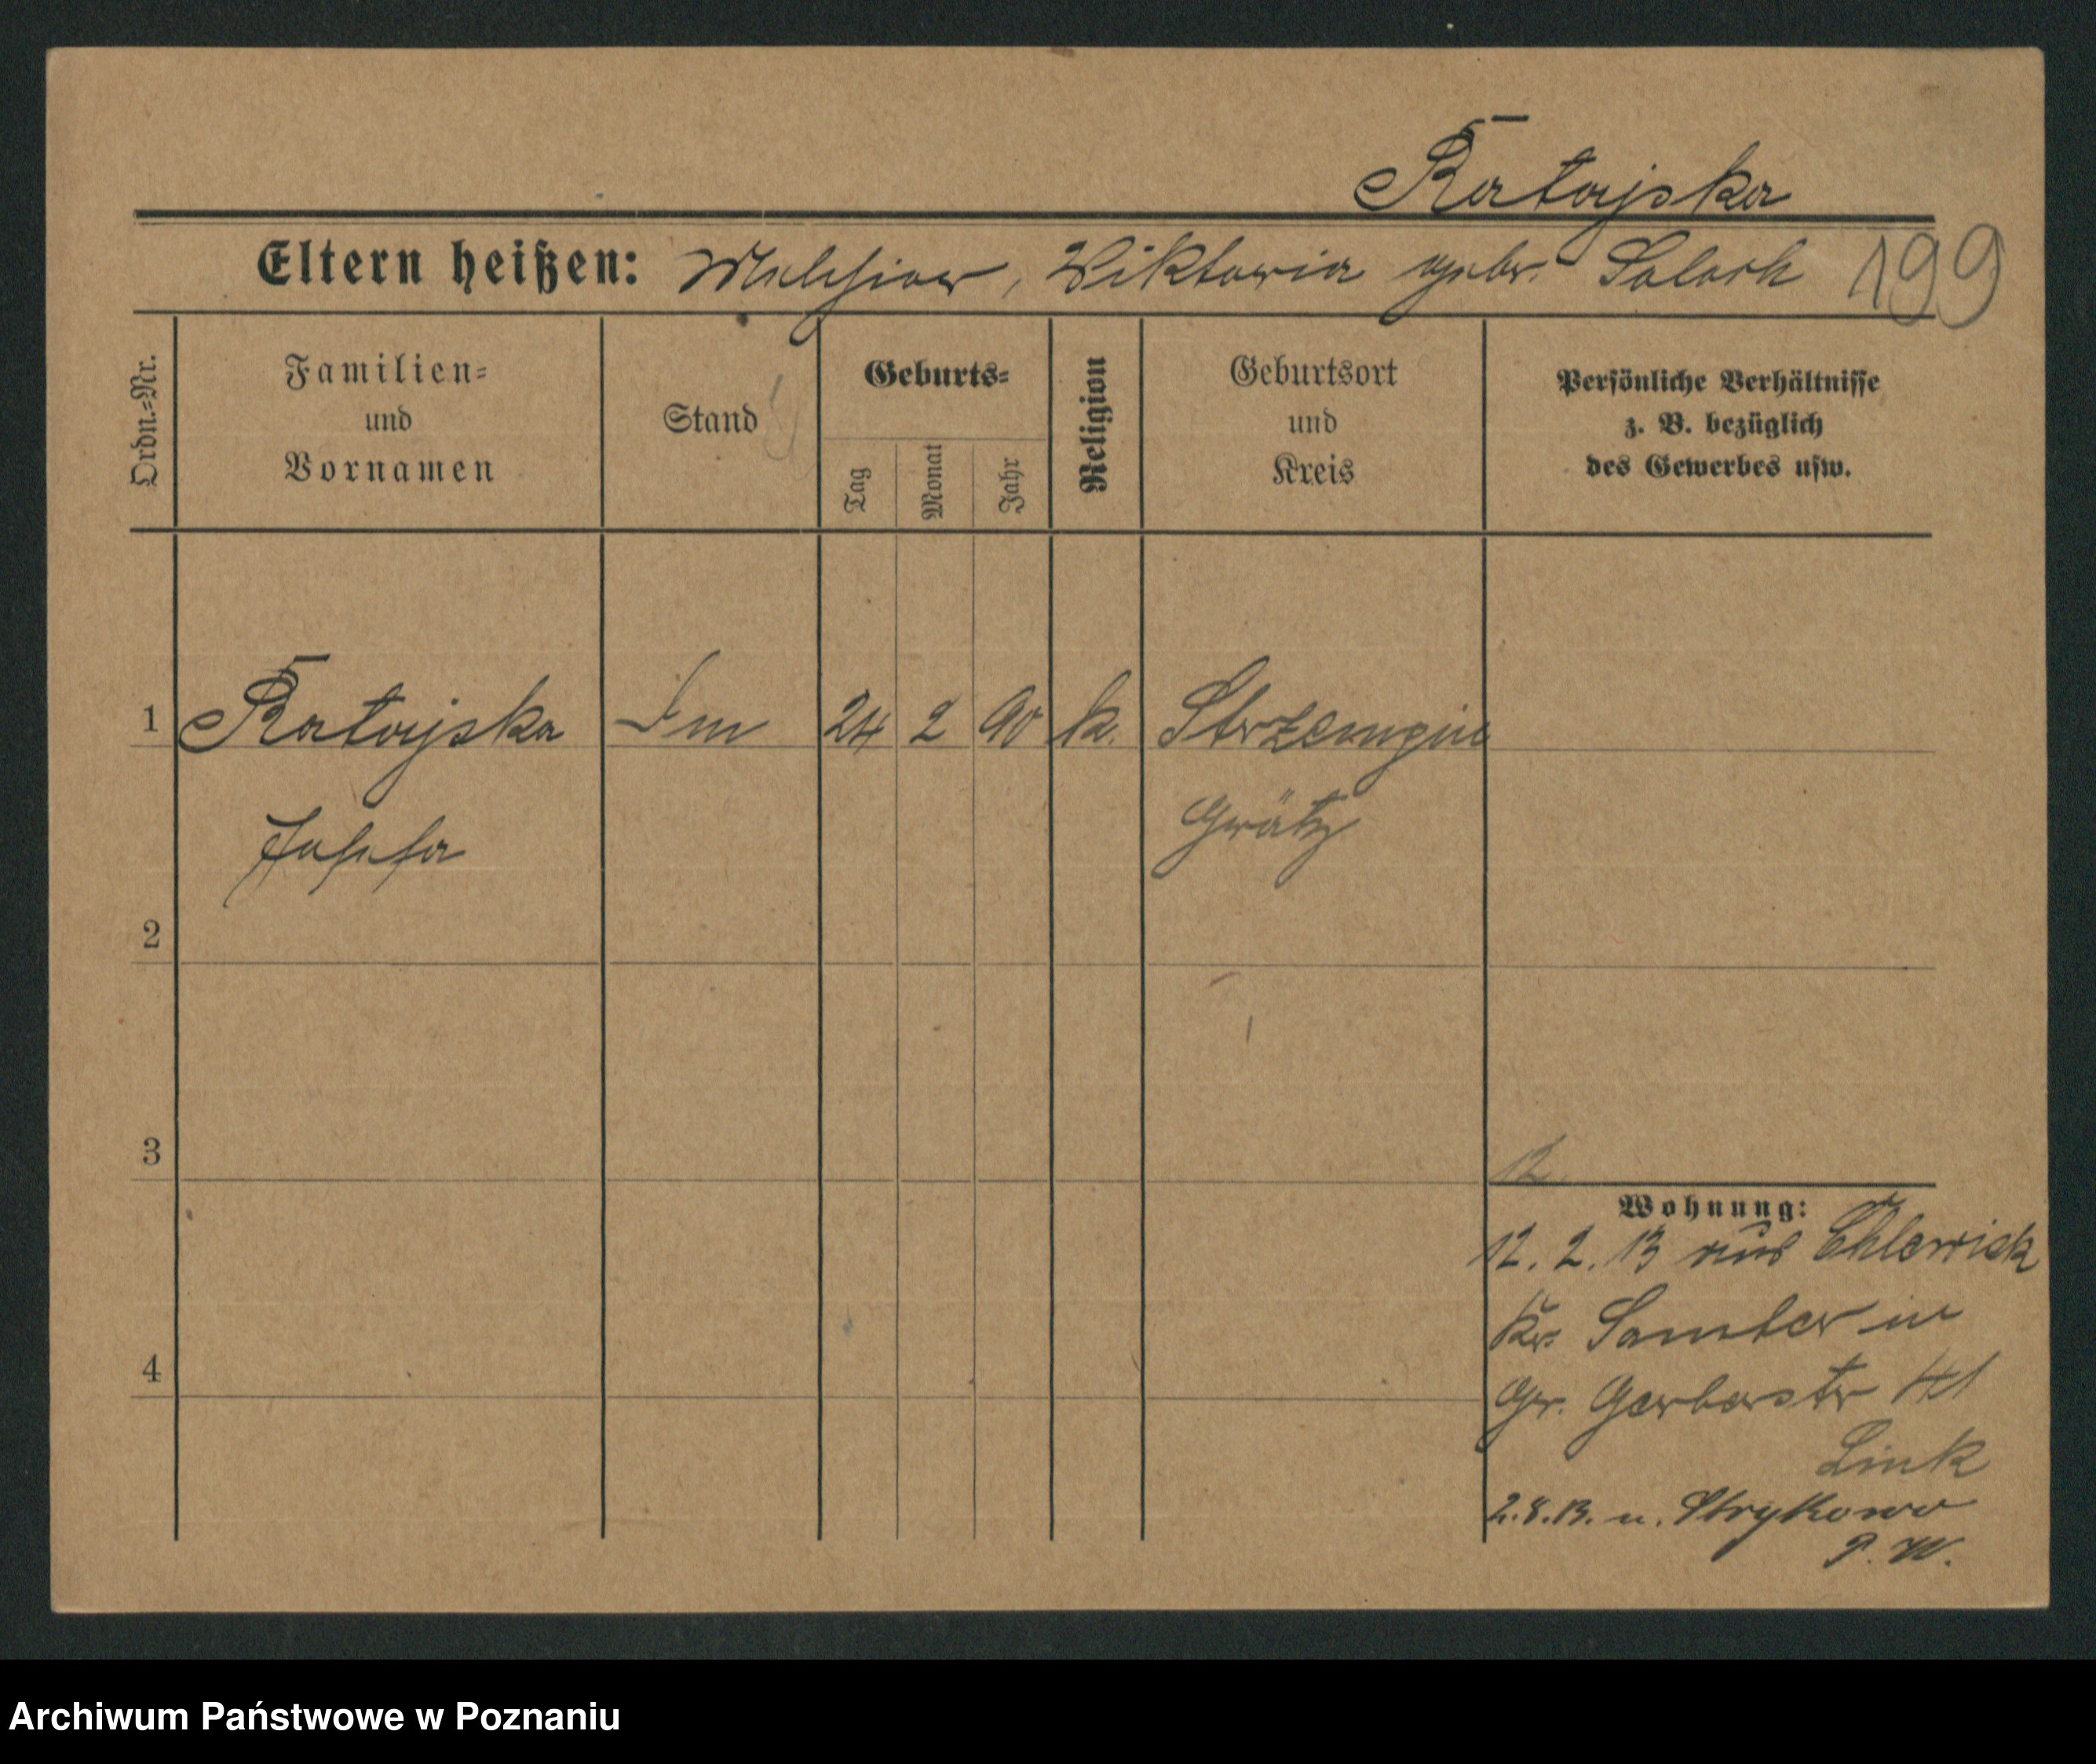 Ratajska
Eltern heißen: Melchior, Viktoria geb. Solach 199
Ordn.-Nr.
Familien-
und
Vornamen
Stand
Geburts-
Tag
Monat
Jahr
Religion
Geburtsort
und
Kreis
Persönliche Verhältnisse
z. B. bezüglich
des Gewerbes usw.
1 Ratajska 24 2 90 k.
Josefa Grätz
2
3
12
Wohnung:
12. 2. 13 aus
Kr. Samter in
4
Gr. Gerberstr 41
Link
2.8.13. n. Strykowo
P. W.
Archiwum Państwowe w Poznaniu